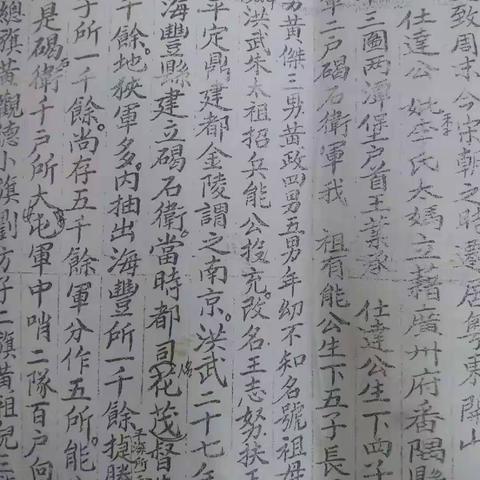 致周末今宋朝之時遷居粵東開山
仕達公妣李氏太媽立籍廣州府番隅縣
三啚两潭堡户首王葉承 仕達公生下两子
軍一户碣石衛軍我 祖有能公生下五子長
男黄傑三男黄政四男五男年幼不知名號祖母
洪武朱太祖招兵能公投充改名王志努扶王
平定鼎建都金陵謂之南京洪武二十七年
海豐縣建立碣石衛當時都司花茂督
千餘地狹軍多内抽出海豐所一千餘捷勝
子所一千餘尚存五千餘軍分作五所能
是碣衛千户所大屯軍中哨二隊百户向
總旗黄觀德小旗劉方子二旗黄祖兒三